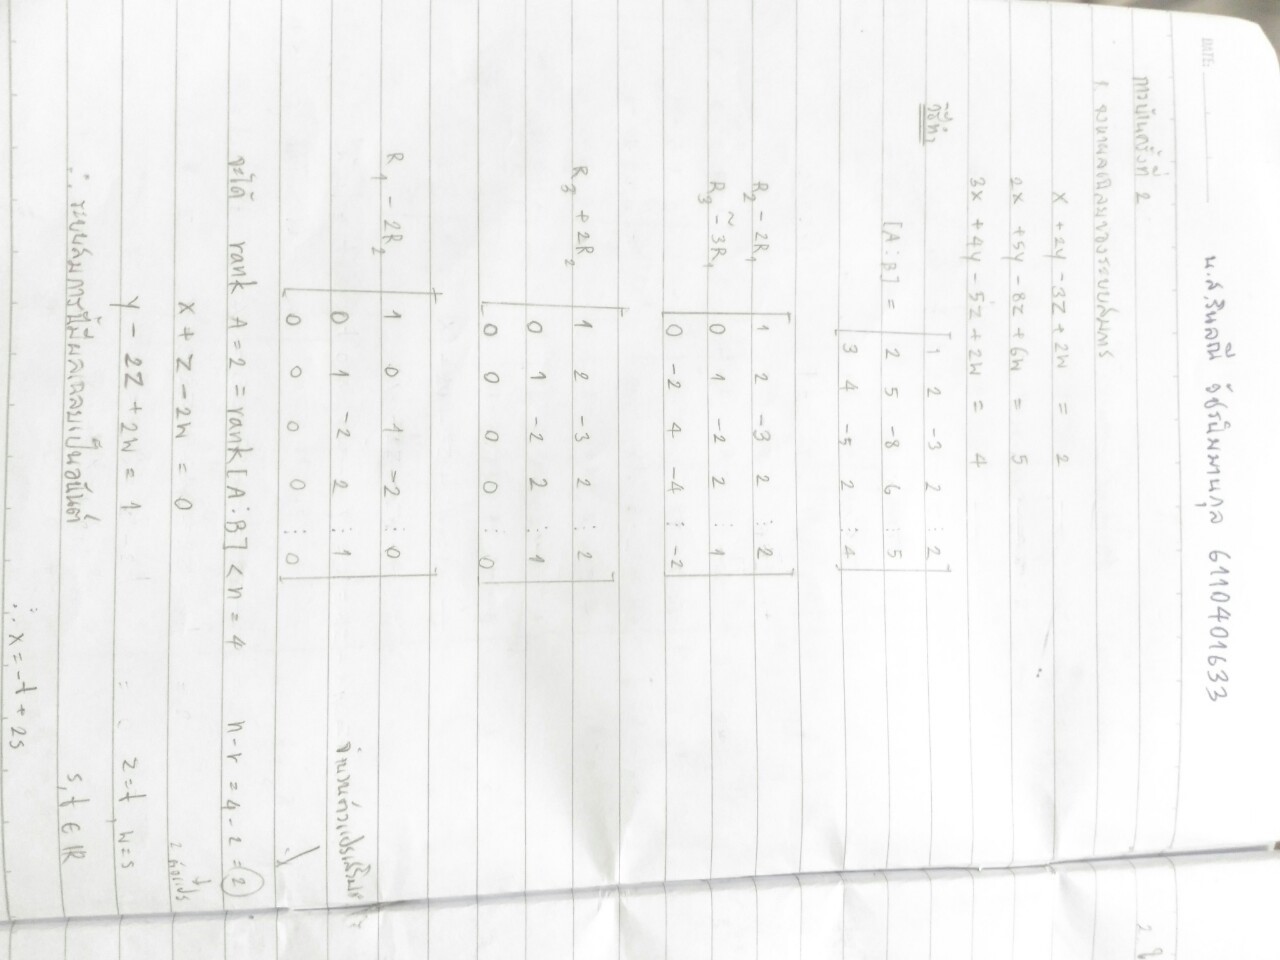 DATE:
น.ส.รินลณี วัชรนิมมานกุล 6110401633
การบ้านครั้งที่ 2
2.
1. จงหาผลเฉลยของระบบสมการ
x + 2y - 3z + 2w = 2
2x + 5y - 8z + 6w = 5
3x + 4y - 5z + 2w = 4
วิธีทำ
[A ⋮ B] = [ 1 2 -3 2 ⋮ 2
2 5 -8 6 ⋮ 5
3 4 -5 2 ⋮ 4 ]
R₂ - 2R₁ [ 1 2 -3 2 ⋮ 2
~
R₃ - 3R₁ 0 1 -2 2 ⋮ 1
0 -2 4 -4 ⋮ -2 ]
R₃ + 2R₂ [ 1 2 -3 2 ⋮ 2
0 1 -2 2 ⋮ 1
0 0 0 0 ⋮ 0 ]
R₁ - 2R₂ [ 1 0 1 -2 ⋮ 0
0 1 -2 2 ⋮ 1
0 0 0 0 ⋮ 0 ]
จำนวนตัวแปรเสรี
จะได้ rank A = 2 = rank [A ⋮ B] < n = 4 n - r = 4 - 2 = 2
2 ตัวแปร
x + z - 2w = 0
y - 2z + 2w = 1 z = t , w = s
∴ ระบบสมการนี้มีผลเฉลยเป็นอนันต์ s, t ∈ IR
∴ x = -t + 2s